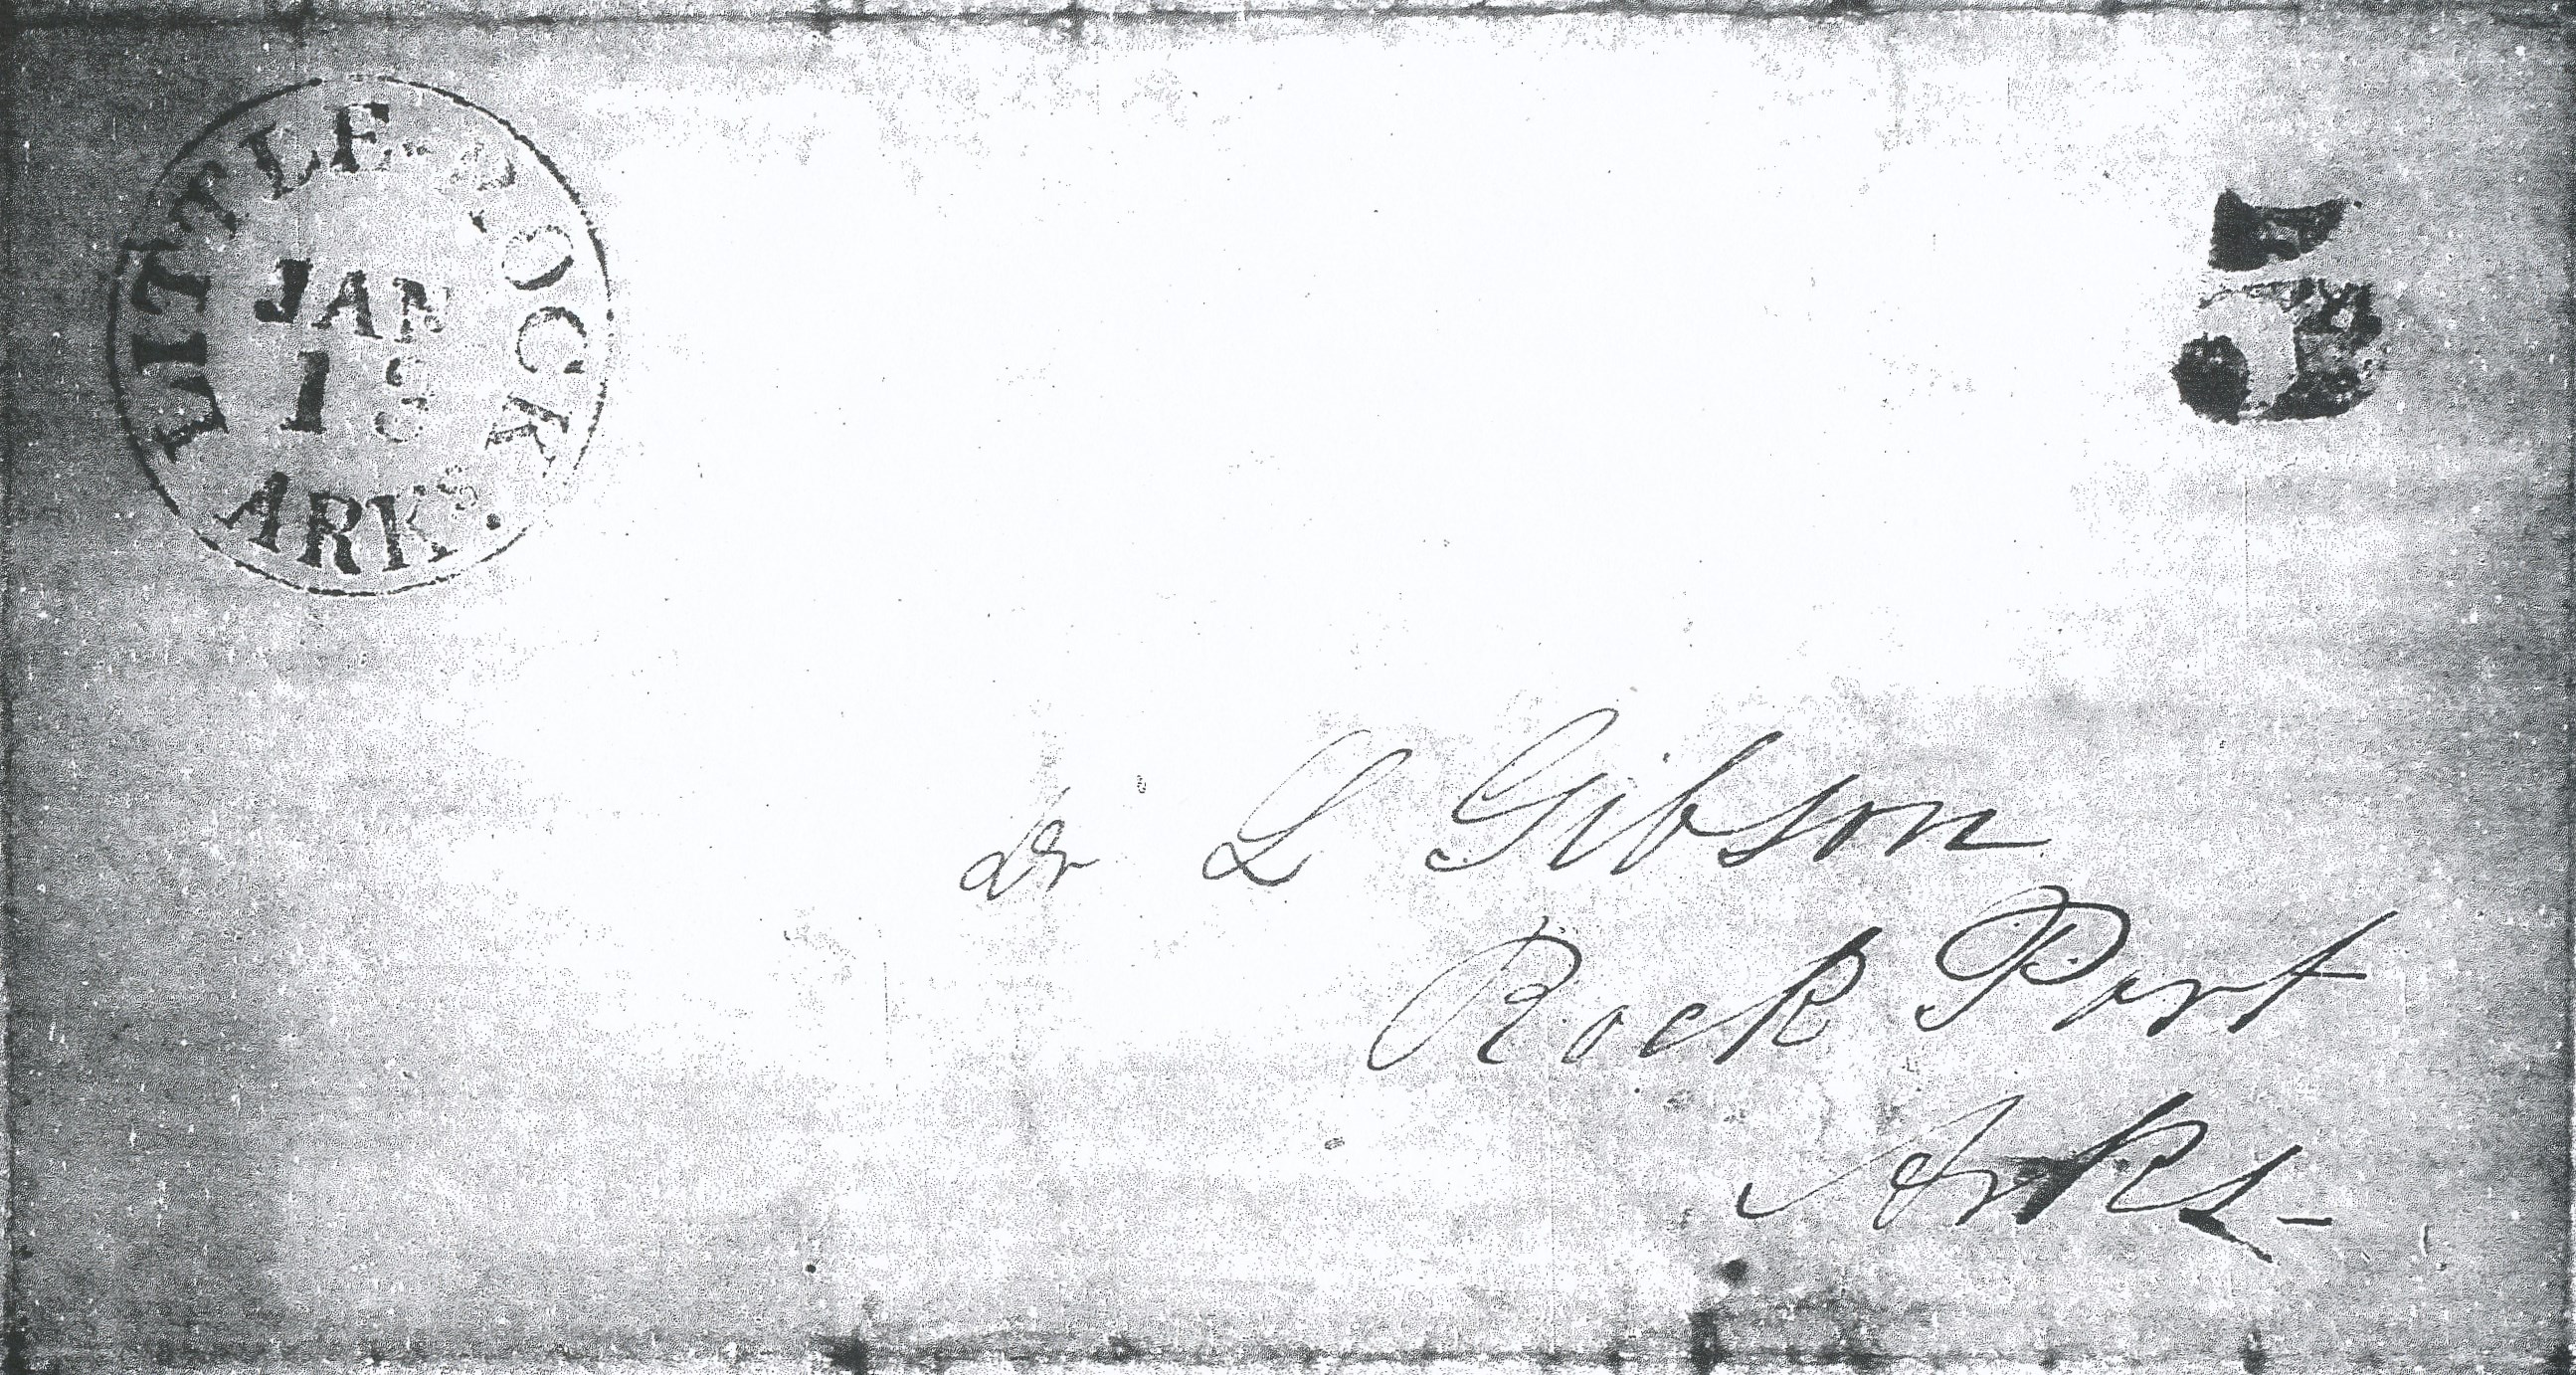 LITTLE-ROCK
JAN
ARKS.
5
Dr L Gibson
Rock Port
Arks-